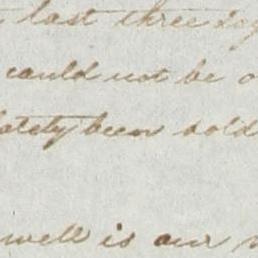 last three
could not be
lately been sold
well is our